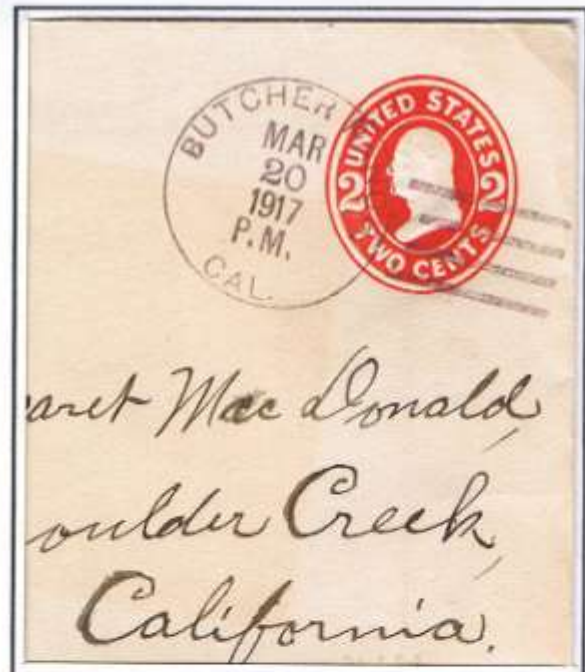 BUTCHER
MAR
20
1917
P.M.
CAL.
UNITED STATES
2 2
TWO CENTS
aret MacDonald,
oulder Creek,
California.